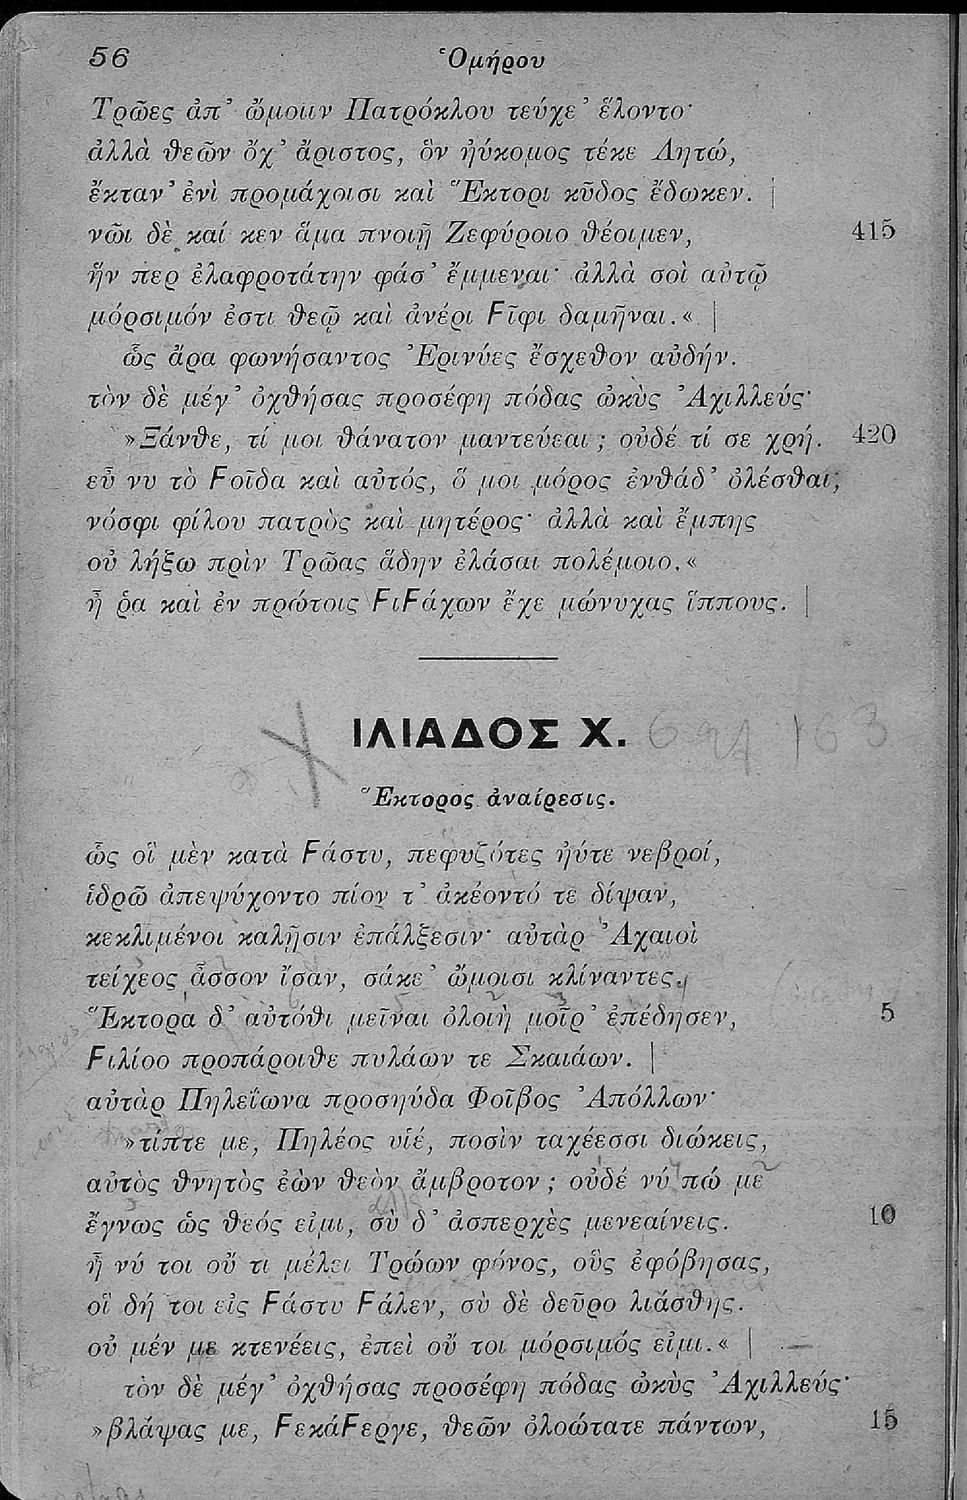 56 Ὁμήρου
Τρῶες ἀπ’ ὤμοιιν Πατρόκλου τεύχε’ ἕλοντο·
ἀλλὰ θεῶν ὄχ’ ἄριστος, ὃν ἠύκομος τέκε Λητώ,
ἔκταν’ ἐνὶ προμάχοισι καὶ Ἕκτορι κῦδος ἔδωκεν. |
νῶι δὲ καί κεν ἅμα πνοιῇ Ζεφύροιο θέοιμεν, 415
ἥν περ ἐλαφροτάτην φάσ’ ἔμμεναι· ἀλλὰ σοὶ αὐτῷ
μόρσιμόν ἐστι θεῷ καὶ ἀνέρι Ϝῖφι δαμῆναι.« |
ὣς ἄρα φωνήσαντος Ἐρινύες ἔσχεθον αὐδήν.
τὸν δὲ μέγ’ ὀχθήσας προσέφη πόδας ὠκὺς Ἀχιλλεύς·
»Ξάνθε, τί μοι θάνατον μαντεύεαι; οὐδέ τί σε χρή. 420
εὖ νυ τὸ Ϝοῖδα καὶ αὐτός, ὅ μοι μόρος ἐνθάδ’ ὀλέσθαι,
νόσφι φίλου πατρὸς καὶ μητέρος· ἀλλὰ καὶ ἔμπης
οὐ λήξω πρὶν Τρῶας ἅδην ἐλάσαι πολέμοιο.«
ἦ ῥα καὶ ἐν πρώτοις ϜιϜάχων ἔχε μώνυχας ἵππους. |
ΙΛΙΑΔΟΣ Χ.
Ἕκτορος ἀναίρεσις.
ὣς οἳ μὲν κατὰ Ϝάστυ, πεφυζότες ἠύτε νεβροί,
ἱδρῶ ἀπεψύχοντο πίον τ’ ἀκέοντό τε δίψαν,
κεκλιμένοι καλῇσιν ἐπάλξεσιν· αὐτὰρ Ἀχαιοὶ
τείχεος ἆσσον ἴσαν, σάκε’ ὤμοισι κλίναντες.
Ἕκτορα δ’ αὐτόθι μεῖναι ὀλοιὴ μοῖρ’ ἐπέδησεν, 5
Ϝιλίοο προπάροιθε πυλάων τε Σκαιάων. |
αὐτὰρ Πηλεΐωνα προσηύδα Φοῖβος Ἀπόλλων·
»τίπτε με, Πηλέος υἱέ, ποσὶν ταχέεσσι διώκεις,
αὐτὸς θνητὸς ἐὼν θεὸν ἄμβροτον; οὐδέ νύ πώ με
ἔγνως ὡς θεός εἰμι, σὺ δ’ ἀσπερχὲς μενεαίνεις. 10
ἦ νύ τοι οὔ τι μέλει Τρώων φόνος, οὓς ἐφόβησας,
οἳ δή τοι εἰς Ϝάστυ Ϝάλεν, σὺ δὲ δεῦρο λιάσθης.
οὐ μέν με κτενέεις, ἐπεὶ οὔ τοι μόρσιμός εἰμι.« |
τὸν δὲ μέγ’ ὀχθήσας προσέφη πόδας ὠκὺς Ἀχιλλεύς·
»βλάψας με, ϜεκάϜεργε, θεῶν ὀλοώτατε πάντων, 15